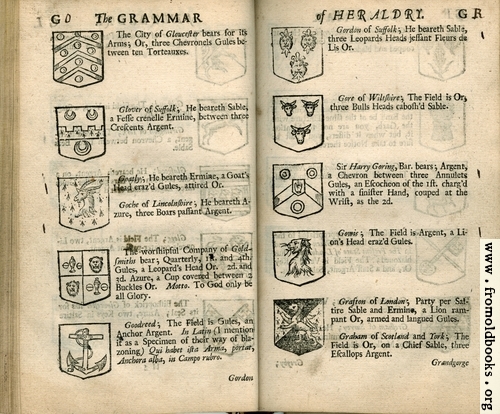 G O The GRAMMAR
The City of Gloucester bears for its
Arms; Or, three Chevronels Gules be-
tween ten Torteauxes.
Glover of Suffolk; He beareth Sable,
a Fesse crenelle Ermine, between three
Crescents Argent.
Goatly; He beareth Ermine, a Goat's
Head eraz'd Gules, attired Or.
Goche of Lincolnshire; He beareth A-
zure, three Boars passant Argent.
The worshipful Company of Gold-
smiths bear; Quarterly, 1st and 4th
Gules, a Leopard's Head Or. 2d. and
3d. Azure, a Cup covered between 2
Buckles Or. Motto. To God only be
all Glory.
Goodreed; The Field is Gules, an
Anchor Argent. In Latin (I mention
it as a Specimen of their way of bla-
zoning) Qui habet ista Arma, portat,
Anchora alba, in Campo rubro.
Gordon
of HERALDRY. G R
Gordon of Suffolk; He beareth Sable,
three Leopards Heads jessant Fleurs de
Lis Or.
Gore of Wiltshire; The Field is Or,
three Bulls Heads cabosh'd Sable.
Sir Harry Goring, Bar. bears; Argent,
a Chevron between three Annulets
Gules, an Escocheon of the 1st. charg'd
with a sinister Hand, couped at the
Wrist, as the 2d.
Gowis; The Field is Argent, a Li-
on's Head eraz'd Gules.
Grafton of London; Party per Sal-
tire Sable and Ermine, a Lion ram-
pant Or, armed and langued Gules.
Graham of Scotland and York; The
Field is Or, on a Chief Sable, three
Escallops Argent.
Grandgorge
www.fromoldbooks.org